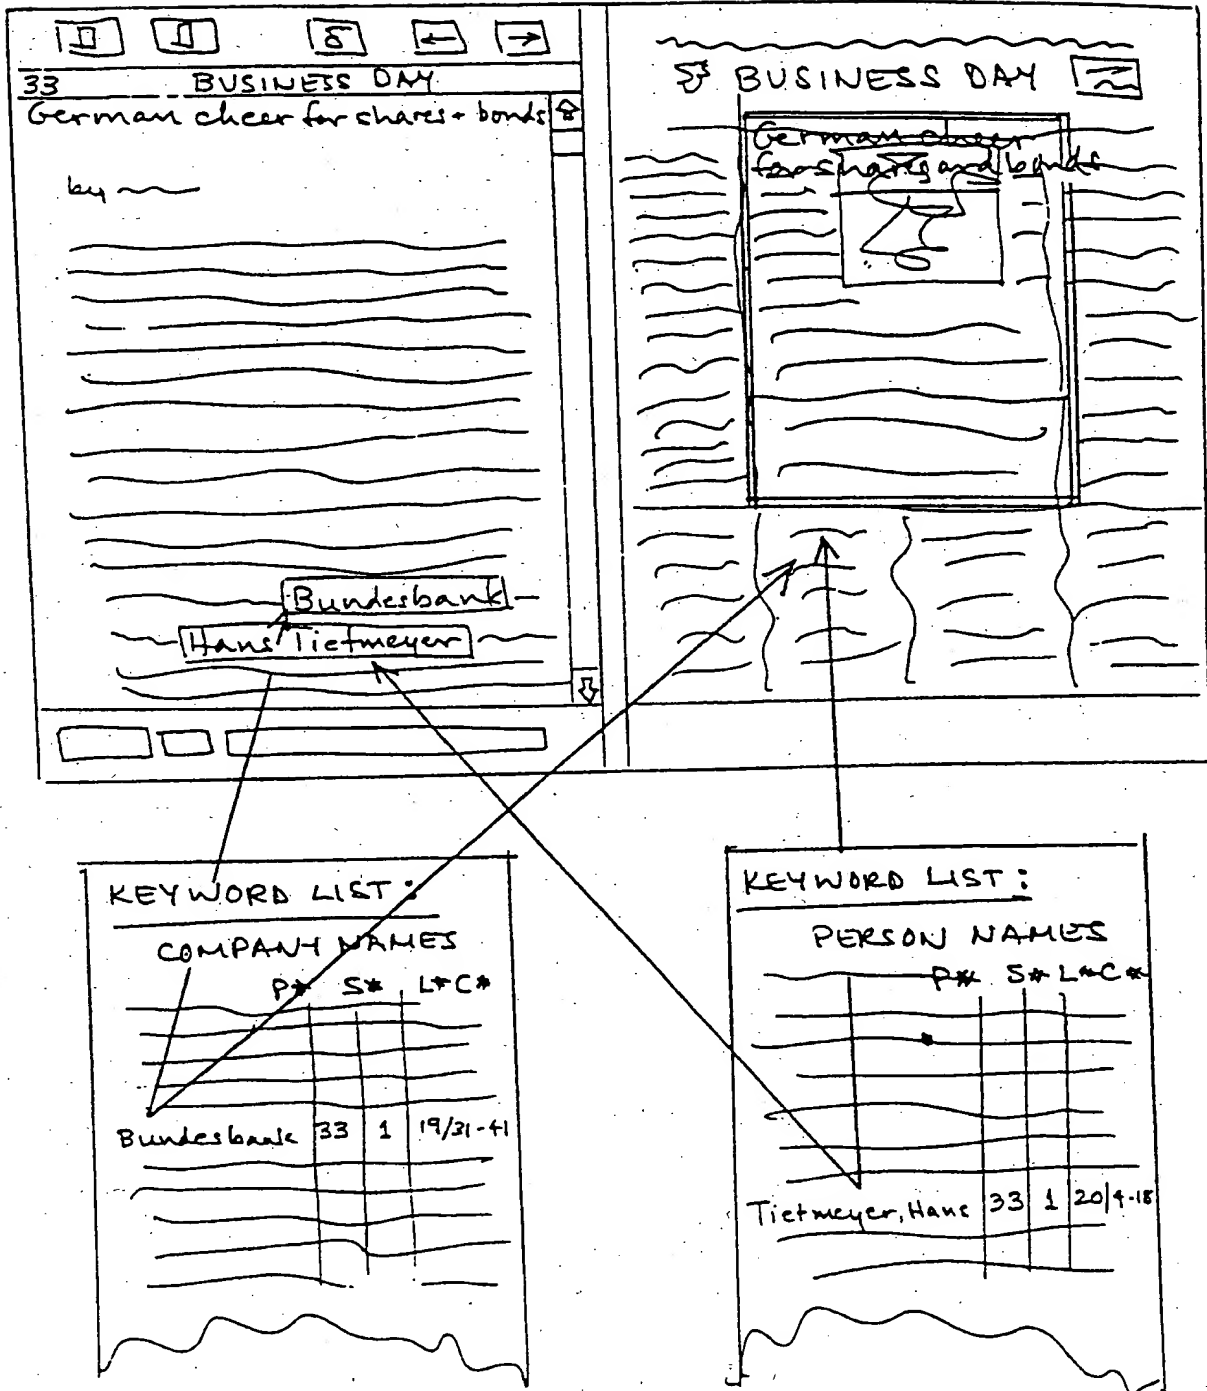 33 BUSINESS DAY
German cheer for shares + bonds
by
Bundesbank
Hans Tietmeyer
BUSINESS DAY
German cheer
for shares and bonds
KEYWORD LIST:
COMPANY NAMES
P* S* L* C*
Bundesbank 33 1 19/31-41
KEYWORD LIST:
PERSON NAMES
P* S* L* C*
Tietmeyer, Hans 33 1 20/4-18